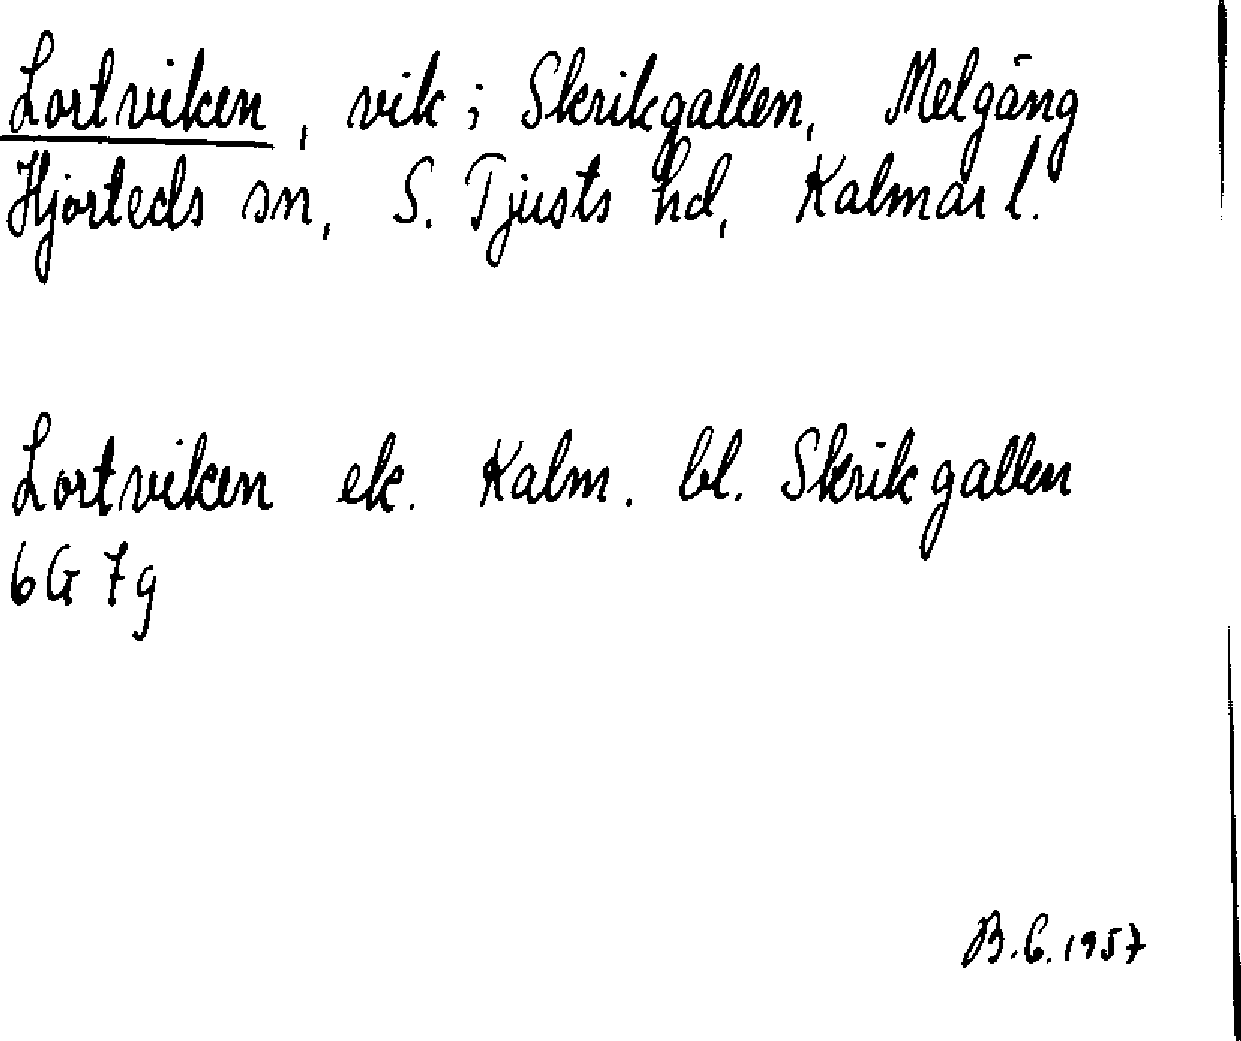 Lortviken, vik i Skrikgallen, Melgäng
Hjorteds sn, S. Tjusts hd, Kalmar l.
Lortviken ek. Kalm. bl. Skrikgallen
6G 7g
B.G. 1957